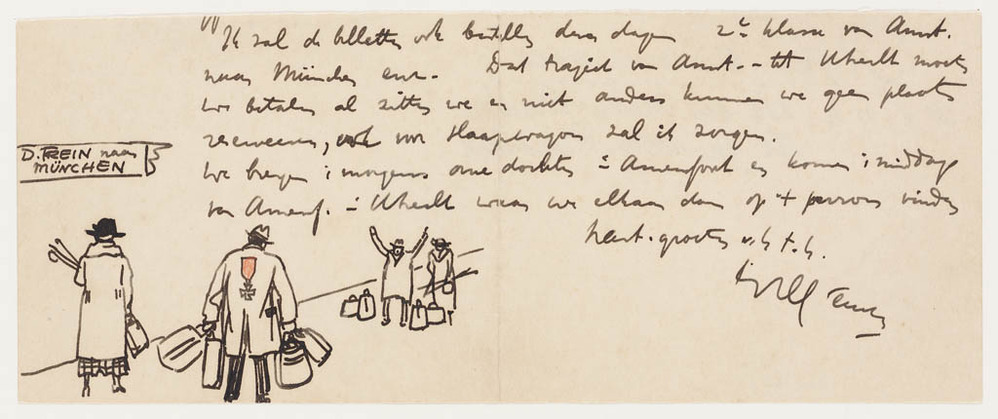 Ik zal de billetten ook bestellen dezer dagen 2e klasse van Amst.
naar München enz. Dat traject van Amst. - tot Utrecht moeten
we betalen al zitten we er niet anders kunnen we geen plaats
reserveeren, ook voor slaapwagon zal ik zorgen.
We brengen 's morgens onze dochter Amersfoort en komen 's middags
van Amersf. Utrecht waar we elkaar dan op 't perron vinden
hart. groeten v.h.t.h.
D. TREIN naar
MÜNCHEN